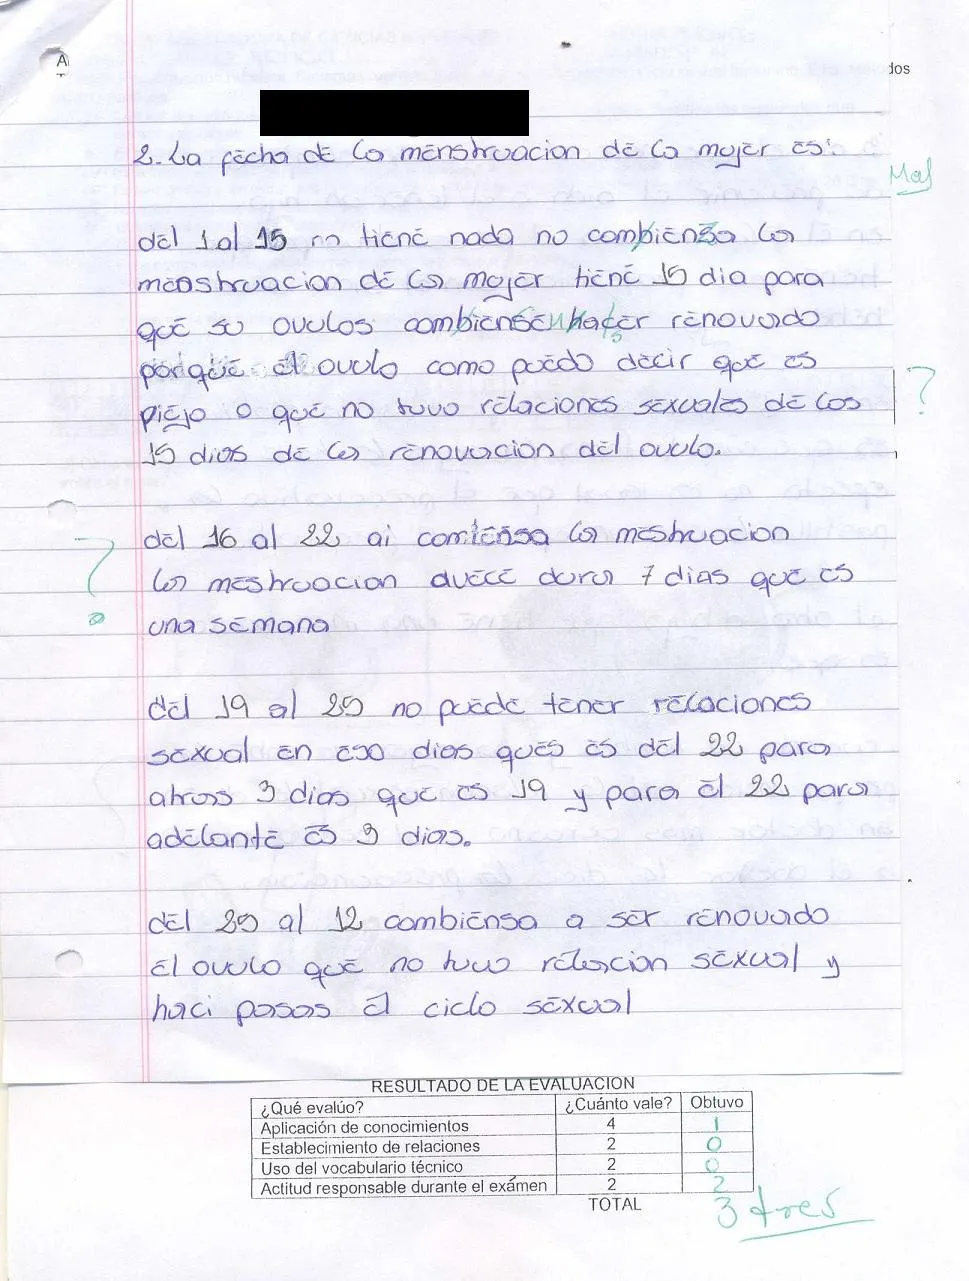 A
dos
2. La fecha de la menstruacion de la mujer es:
Mal
del 1 al 15 no tiene nada no combienza la
menstruacion de la mujer tiene 15 dia para
que su ovulos combiensen hacer renovado
porque el ovulo como puedo decir que es
piejo o que no tuvo relaciones sexuales de los
?
15 dias de la renovacion del ovulo.
del 16 al 22 ai comiensa la mestruacion
?
la mestruacion duece durar 7 dias que es
una semana
del 19 al 25 no puede tener relaciones
sexual en eso dias ques es del 22 para
atras 3 dias que es 19 y para el 22 para
adelante es 3 dias.
del 25 al 12 combiensa a ser renovado
el ovulo que no tuvo relacion sexual y
haci pasas el ciclo sexual
RESULTADO DE LA EVALUACION
¿Qué evalúo? ¿Cuánto vale? Obtuvo
Aplicación de conocimientos 4 1
Establecimiento de relaciones 2 0
Uso del vocabulario técnico 2 0
Actitud responsable durante el exámen 2 2
TOTAL 3 tres